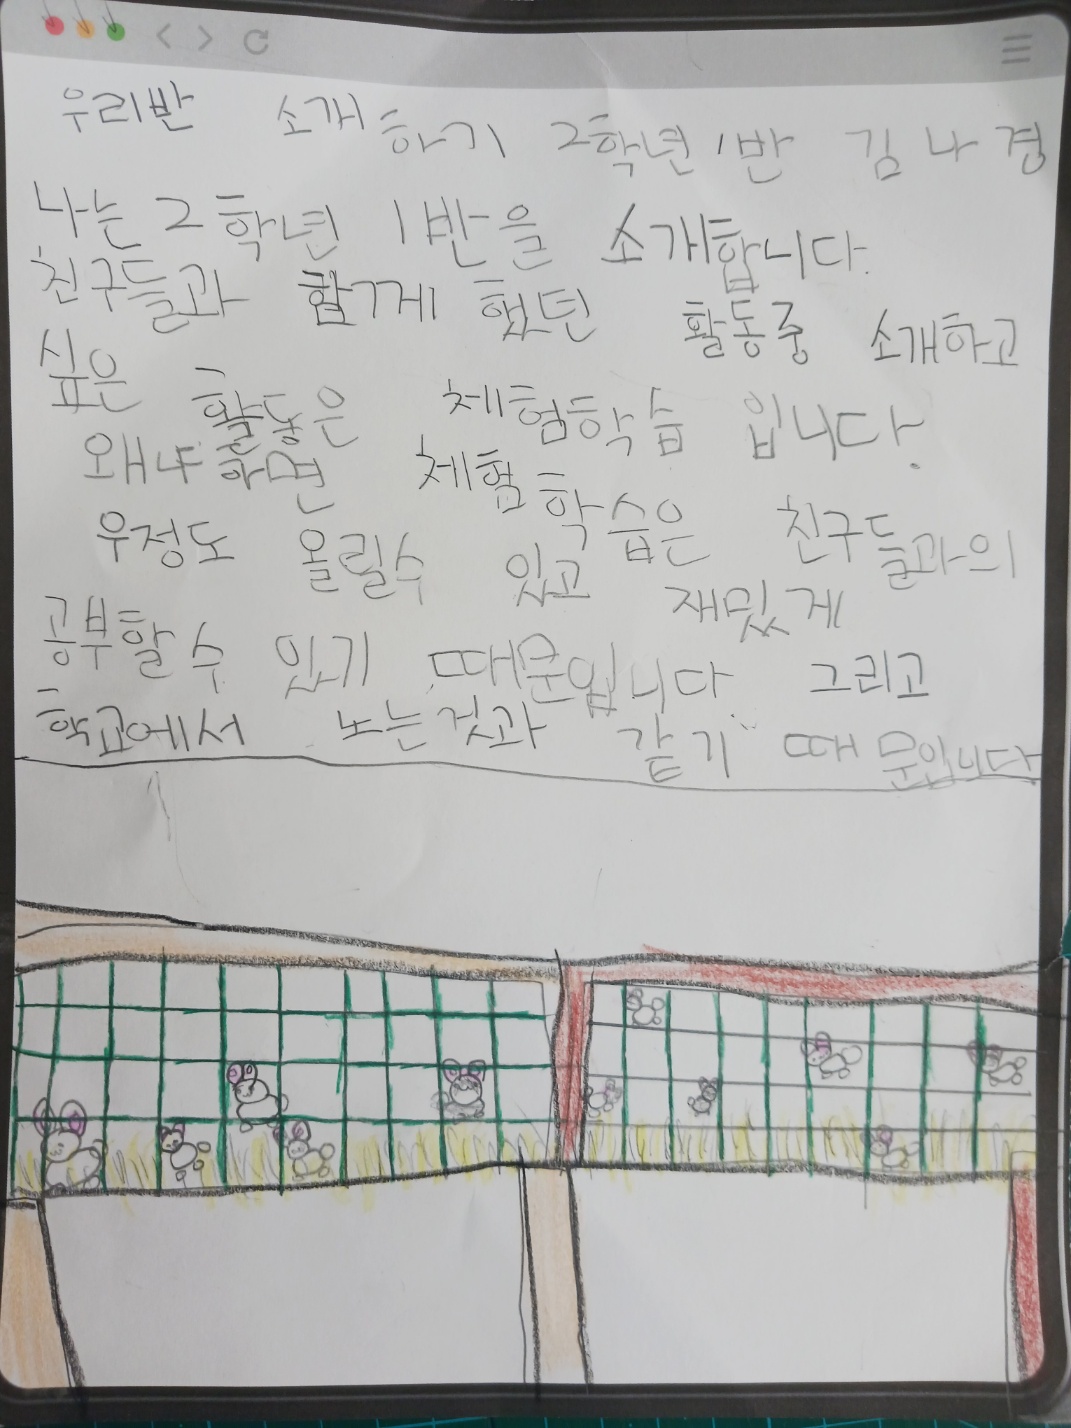 우리반 소개하기 2학년 1반 김나경
나는 2학년 1반을 소개합니다.
친구들과 함께 했던 활동중 소개하고
싶은 활동은 체험학습 입니다.
왜냐하면 체험학습은 친구들과의
우정도 올릴수 있고 재밌게
공부할수 있기 때문입니다 그리고
학교에서 노는것과 같기 때문입니다